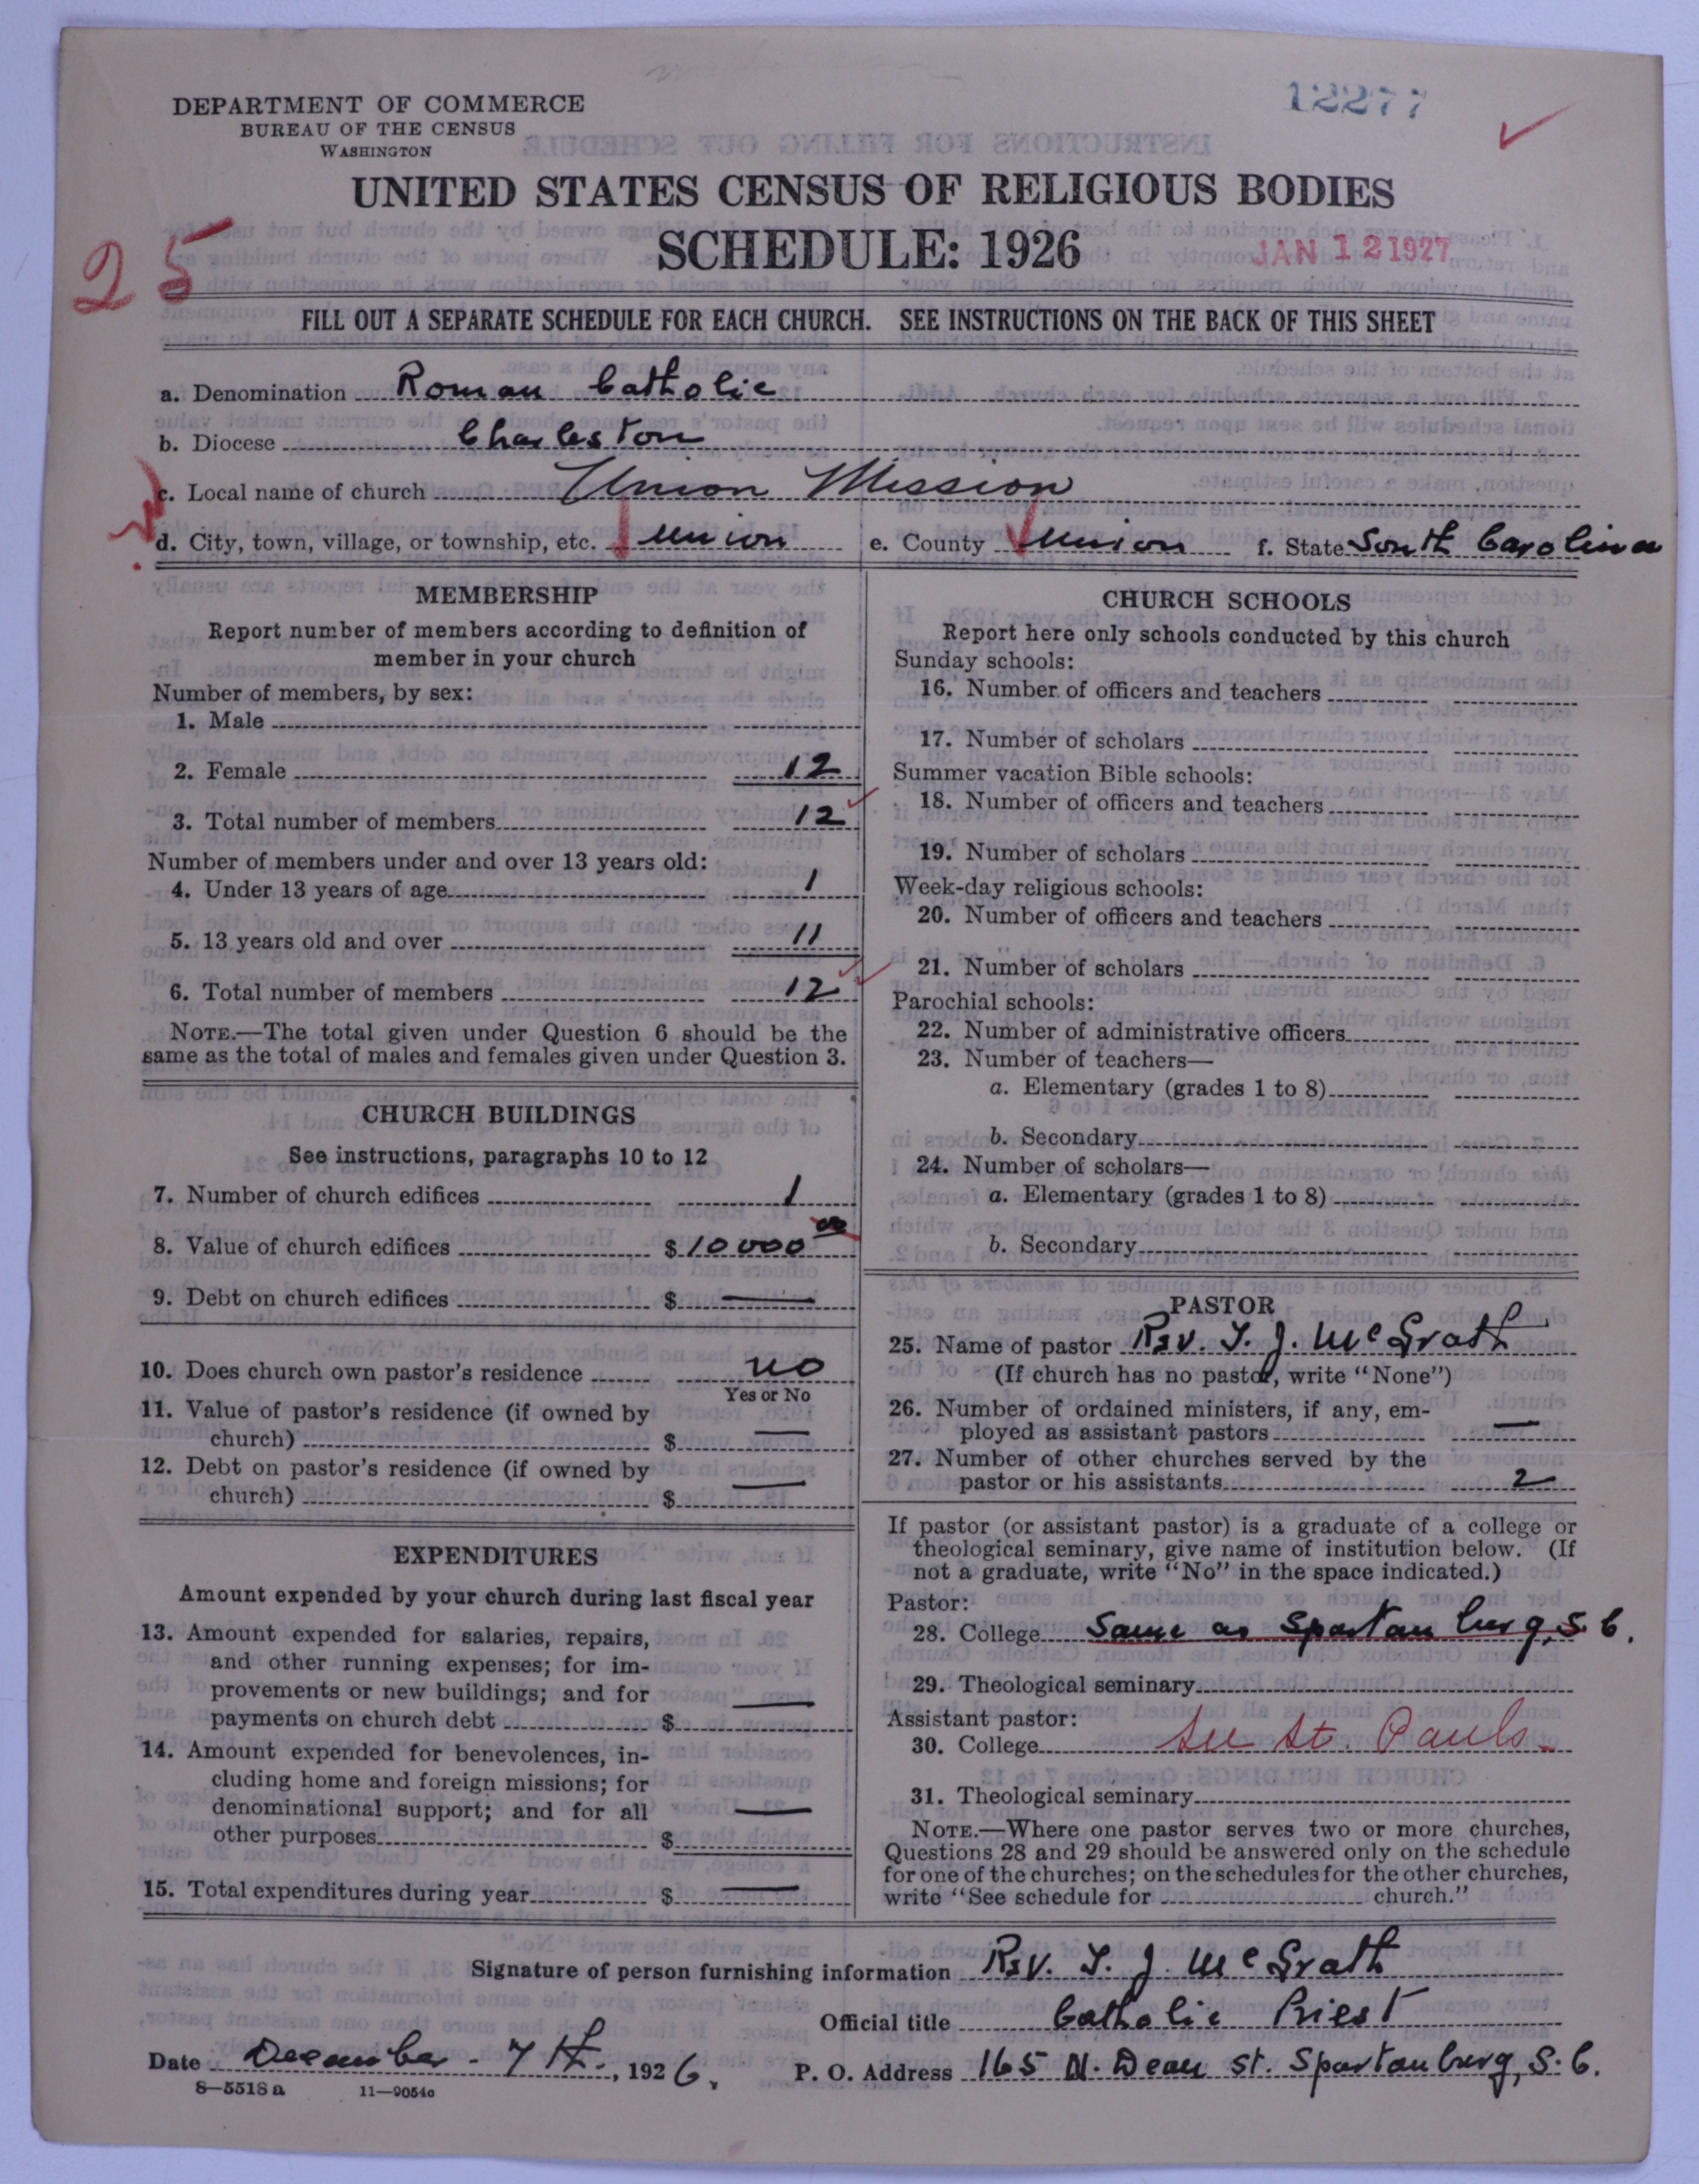 12277
DEPARTMENT OF COMMERCE
BUREAU OF THE CENSUS
WASHINGTON
UNITED STATES CENSUS OF RELIGIOUS BODIES
SCHEDULE: 1926
JAN 12 1927
25
FILL OUT A SEPARATE SCHEDULE FOR EACH CHURCH. SEE INSTRUCTIONS ON THE BACK OF THIS SHEET
a. Denomination Roman Catholic
b. Diocese Charleston
c. Local name of church Union Mission
d. City, town, village, or township, etc. Union e. County Union f. State South Carolina
MEMBERSHIP
Report number of members according to definition of
member in your church
Number of members, by sex:
1. Male
2. Female 12
3. Total number of members 12
Number of members under and over 13 years old:
4. Under 13 years of age 1
5. 13 years old and over 11
6. Total number of members 12
NOTE.—The total given under Question 6 should be the
same as the total of males and females given under Question 3.
CHURCH BUILDINGS
See instructions, paragraphs 10 to 12
7. Number of church edifices 1
8. Value of church edifices $10000 00
9. Debt on church edifices $ —
10. Does church own pastor's residence no
Yes or No
11. Value of pastor's residence (if owned by
church) $ —
12. Debt on pastor's residence (if owned by
church) $ —
EXPENDITURES
Amount expended by your church during last fiscal year
13. Amount expended for salaries, repairs,
and other running expenses; for im-
provements or new buildings; and for
payments on church debt $ —
14. Amount expended for benevolences, in-
cluding home and foreign missions; for
denominational support; and for all
other purposes $ —
15. Total expenditures during year $ —
CHURCH SCHOOLS
Report here only schools conducted by this church
Sunday schools:
16. Number of officers and teachers
17. Number of scholars
Summer vacation Bible schools:
18. Number of officers and teachers
19. Number of scholars
Week-day religious schools:
20. Number of officers and teachers
21. Number of scholars
Parochial schools:
22. Number of administrative officers
23. Number of teachers—
a. Elementary (grades 1 to 8)
b. Secondary
24. Number of scholars—
a. Elementary (grades 1 to 8)
b. Secondary
PASTOR
25. Name of pastor Rev. T. J. McGrath
(If church has no pastor, write "None")
26. Number of ordained ministers, if any, em-
ployed as assistant pastors —
27. Number of other churches served by the
pastor or his assistants 2
If pastor (or assistant pastor) is a graduate of a college or
theological seminary, give name of institution below. (If
not a graduate, write "No" in the space indicated.)
Pastor:
28. College Same as Spartanburg, S. C.
29. Theological seminary
Assistant pastor:
30. College See St. Pauls.
31. Theological seminary
NOTE.—Where one pastor serves two or more churches,
Questions 28 and 29 should be answered only on the schedule
for one of the churches; on the schedules for the other churches,
write "See schedule for church."
Signature of person furnishing information Rev. T. J. McGrath
Official title Catholic Priest
Date December 7th, 1926. P. O. Address 165 N. Dean St. Spartanburg, S. C.
8—5518a 11—9054c